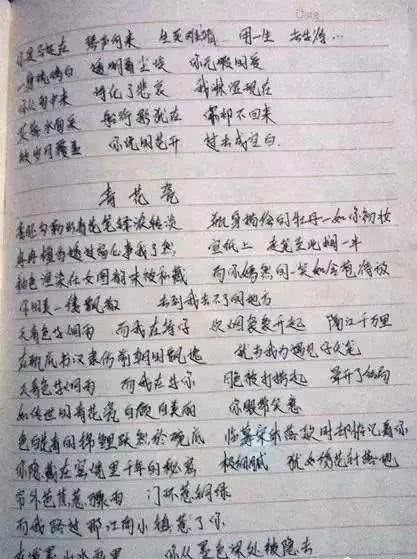 琴声何来 生死难猜 用一生 去等待…
一身琉璃白 透明着尘埃 你无瑕的爱
你从雨中来 诗化了悲哀 我淋湿现在
芙蓉水面采 船行影犹在 你却不回来
被岁月覆盖 你说的花开 过去成空白
青花瓷
素胚勾勒出青花笔锋浓转淡 瓶身描绘的牡丹一如你初妆
冉冉檀香透过窗心事我了然 宣纸上 走笔至此搁一半
釉色渲染仕女图韵味被私藏 而你嫣然的一笑如含苞待放
你的美一缕飘散 去到我去不了的地方
天青色等烟雨 而我在等你 炊烟袅袅升起 隔江千万里
在瓶底书汉隶仿前朝的飘逸 就当我为遇见你伏笔
天青色等烟雨 而我在等你 月色被打捞起 晕开了结局
如传世的青花瓷自顾自美丽 你眼带笑意
色白花青的锦鲤跃然於碗底 临摹宋体落款时却惦记着你
你隐藏在窑烧里千年的秘密 极细腻 犹如绣花针落地
帘外芭蕉惹骤雨 门环惹铜绿
而我路过那江南小镇惹了你
在泼墨山水画里 你从墨色深处被隐去